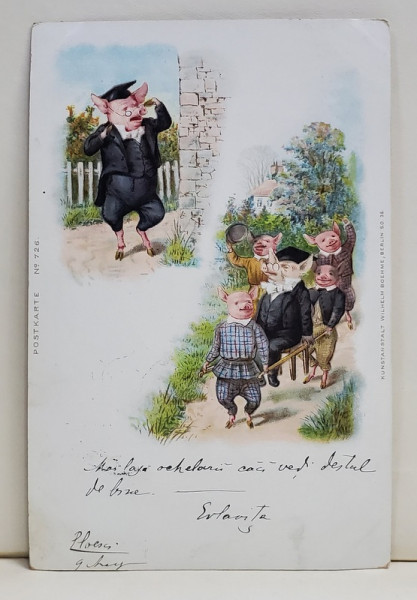 POSTKARTE Nº 726
KUNSTANSTALT WILHELM BOEHME, BERLIN SO 36
Măi lasă ochelarii căci vezi destul
de bine.
Ploesci
9 Aug